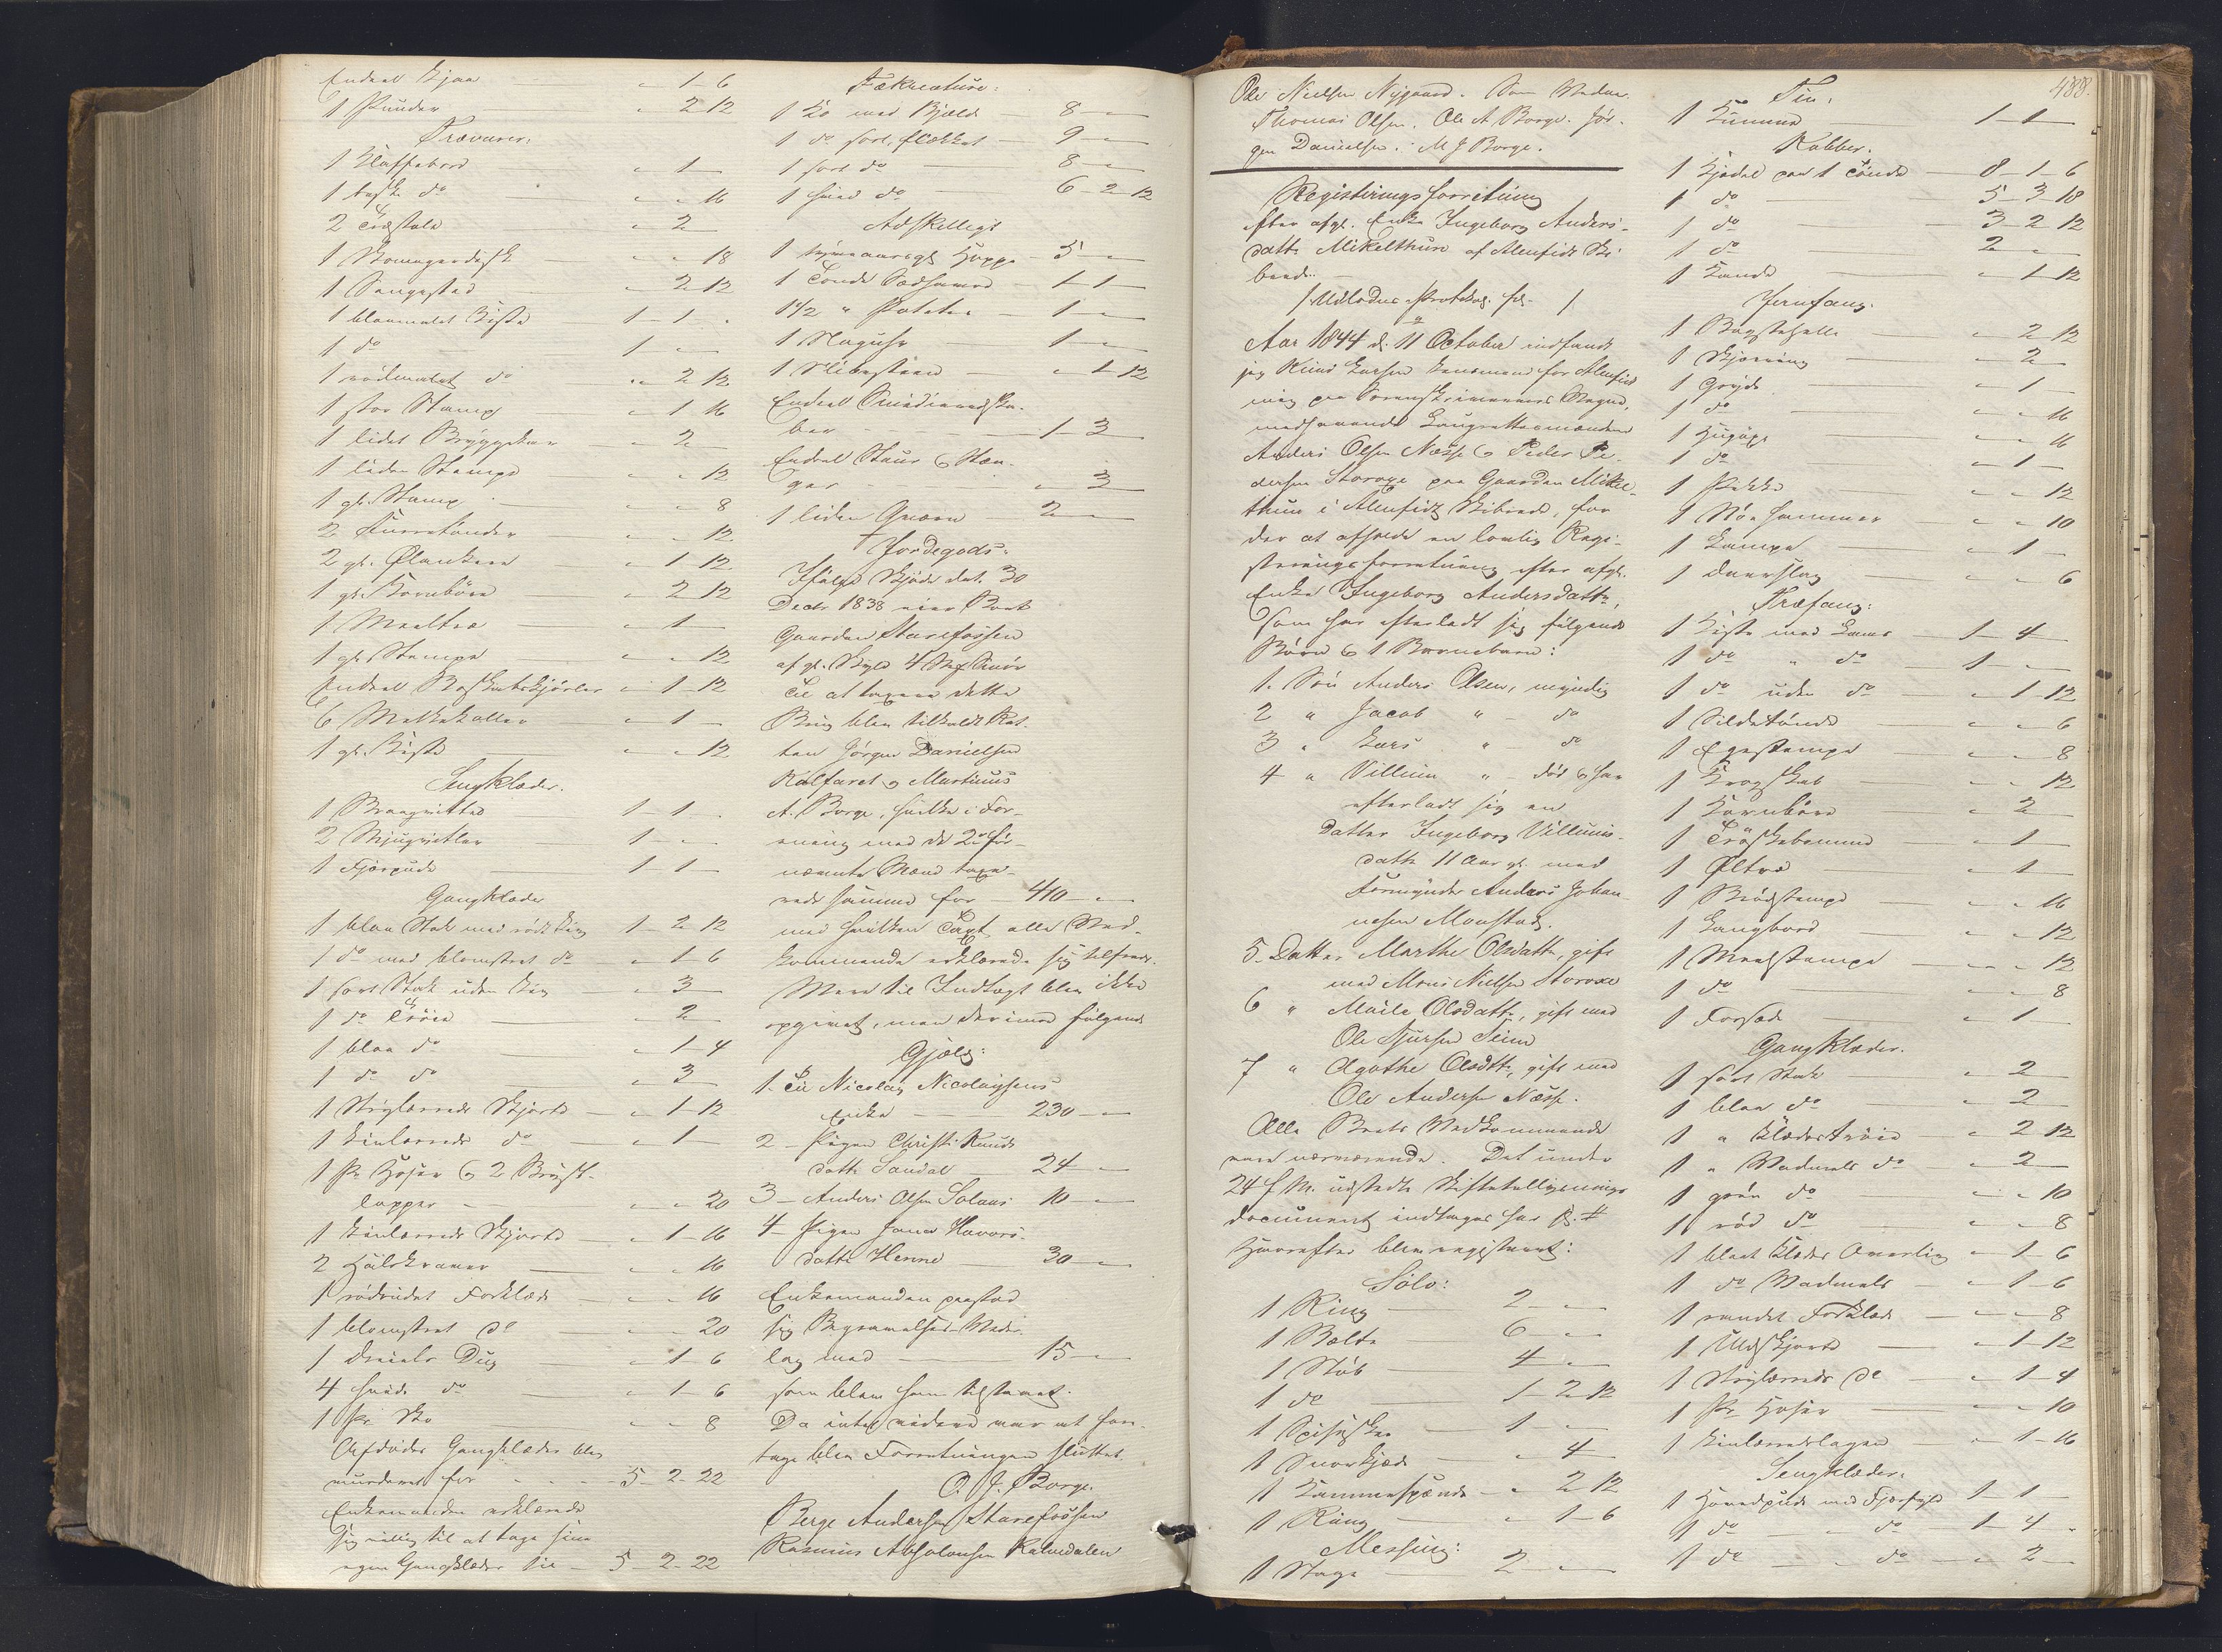 Endeel
1 Punder " 2 12
Trævarer:
1 Klaffebord " 1 —
1 Aske do " " 16
2 Træstole " 2 —
1 Skomagerdisk " " 18
1 Sengested " 2 12
1 blaamalet Kiste 1 - 1 "
1 do 1 " —
1 rödmalet do " 2 12
1 stor Stamp " 1 16
1 lidet Bryggekar " 2 —
1 liden Stampe " " 12
1 gl. Stamp " " 8
2 Tönder " " 12
2 gl. Ølankere " 1 12
1 gl. Kornböre " 2 12
1 Meeltra " 1 —
1 gl. Stampe " " 12
Endeel " 1 - 12
6 Melkekoller " 1 —
1 gl. Kiste " " 12
Sengklæder.
1 1 - 1 "
2 1 - "
1 Fjærpude 1 - 1 —
Gangklæder
1 blaa Stak med rödt 1 - 2 12
1 do med blomstret do " 1 - 6
1 sort Stak uden " 3 —
1 do Tröie " 2 —
1 blaa do " 1 - 4
1 do do " 3 —
1 Strylærreds Skjorte " 1 - 12
1 Linlærreds do " 1 —
1 Pr Hoser & 2 Bryst-
lapper " " 20
1 Linlærreds Skjorte " 1 - 16
2 " " 16
1 rödrudet Forklæde " " 16
1 blomstret do " " 20
1 Dreiels Dug " 1 - 6
4 hvide do " 1 - 6
1 Pr Sko " " 8
Afdødes Gangklæder blev
vurderet for 5 - 2 - 22
Enkemanden erklærede
sig villig til at tage sine
egne Gangklæder til 5 - 2 - 22
Fækreature:
1 Ko med Bjælde 8 " —
1 do sort flækket 9 " —
1 sort do 8 " —
1 hvid do 6 - 2 - 12
Adskelligt
1 Hoppe 5 "
1 Tönde Sædhavre 1 - 1 —
1 1/2 " Poteter 1 " —
1 Stagühr 1 " —
1 Slibesteen " 1 12
Endeel Smidieredska-
ber 1 - 3 —
Endeel Staur & Stæn-
ger " 3 —
1 liden Qværn 2 " —
Jordegods:
Ifölge Skjöde dat. 30
Decbr 1838 eier Boet
Gaarden Starefossen
af gl. Skyld 4 Smör
Til at taxere dette
Brug blev tilkaldt
Jörgen Danielsen
Kalfaret og Martinus
A. Borge, hvilke i For-
ening med de 2de för-
nævnte Mænd taxe-
rede samme for 410 - "
med hvilken Taxt alle Ved-
kommende erklærede sig tilfreds.
Mere til Indtægt blev ikke
opgivet, men derimod fölgende
Gjæld:
1. Til Nicolay Nicolaysens
Enke 230 —
2 Pigen Christi Knuds
datter Sandal 24 - "
3 - Anders Olsen Solaas 10 - "
4 - Pigen Havors-
datter Henne 30 "
Enkemanden paastod
sig Begravelses-Veder-
lag med 15 "
som blev ham tilstaaet.
Da intet videre var at fore-
tage blev Forretningen sluttet.
O. J. Borge.
Berge Andersen Starefossen
Rasmus Absalonsen Kalvedalen
488.
Ole Nielsen Nygaard. Som Vidner.
Thomas Olsen. Ole A Borge. Jör-
gen Danielsen. M J Borge.
Registeringsforretning
efter afgl. Enke Ingeborg Anders-
datter Mikelthun af Alenfidt Ski-
brede.
Aar 1844 d. 11 October indfandt
jeg Knud Larsen Lensmand for Alenfidt
mig paa Sorenskriverens Vegne,
medhavende Laugrettesmændene
Anders Olsen Næsse & Peder Pe-
dersen Storoxe paa Gaarden Mikel-
thun i Alenfidt Skibrede, for
der at afholde en lovlig Regi-
steringsforretning efter afgl.
Enke Ingeborg Andersdatter,
som har efterladt sig fölgende
Börn & 1 Barnebarn:
1. Sön Anders Olsen, myndig
2 " Jacob " - do
3 " Lars " - do
4 " Villum " - död & har
efterladt sig en
Datter Ingeborg Villums-
datter 11 Aar gl. med
Formynder Anders Johan-
nesen Monstad.
5. Datter Marthe Olsdatter, gift
med Mons Nielsen Storoxe
6 " Olsdatter, gift med
Ole Sjursen Seim
7 " Agathe Olsdtr, gift med
Ole Andersen Næsse.
Alle Boets Vedkommende
vare nærværende. Det under
24 f. M. udstedte Skiftetillysnings
document indtages her
Hvorefter blev registreret:
Sölv:
1 Ring 2 " —
1 Bælte 6 - "
1 Stöb 4 "
1 do 1 - 2 - 12
1 Spiseskee 1 "
1 Snorkjæde " 4 —
1 " 2 12
1 Ring " 1 - 6
Messing:
1 Stage 2 "
Tin:
1 1 - 1 —
Kobber.
1 Kjedel paa 1 Tönde 8 - 1 - 6
1 do 5 - 3 - 18
1 do 3 - 2 - 12
1 do 2 " —
1 Kande " 1 - 12
Jernfang.
1 Bagstehelle " 2 - 12
1 Skjæring " 2 —
1 Gryde " 1 —
1 do " " 16
1 " " 16
1 do " 1 —
1 Hakke " " 12
1 hammer " " 10
1 Lampe " 1 —
1 " " 6
Træfang:
1 Kiste med Laas 1 - 4 —
1 do " do 1 " —
1 do uden do " 1 - 12
1 Sildetönde " " 6
1 Egestampe " " 8
1 Krogskab " " 12
1 Kornböre " 2 —
1 " 1 —
1 Öltræ " 1 —
1 Brödstampe " " 16
1 Langbord " " 12
1 Meelstampe " " 12
1 do " " 8
1 " 1 —
Gangklæder.
1 sort Stak " 2 —
1 blaa do " 2 —
1 " Klædestrøie " 2 12
1 " Vadmels do " 2 —
1 grön do " " 10
1 röd do " " 8
1 blaat Klædes Overliv " 1 - 6
1 do Vadmels " 1 - 6
1 randet Forklæde " " 8
1 Uldskjorte " 1 - 12
1 Strylærreds do " 1 - 4
1 Pr Hoser " " 10
1 Linlærredslagen " 1 - 16
Sengklæder.
1 Hovedpude med Fjærfyld 1 - 1 —
1 do " do 1 - 4 "
1 do " do " 2 —